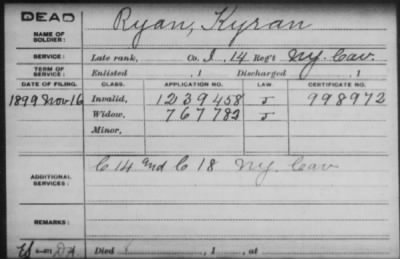 DEAD
NAME OF SOLDIER: Ryan, Kyran
SERVICE: Late rank, Co. I, 14 Reg't Ny. Cav.
TERM OF SERVICE: Enlisted , 1 Discharged , 1
DATE OF FILING. CLASS. APPLICATION NO. LAW. CERTIFICATE NO.
1899 Nov 16 Invalid, 1239458 J 998972
Widow, 767782 J
Minor,
ADDITIONAL SERVICES: C 14 and C 18 Ny. Cav
REMARKS:
Died , 1 , at